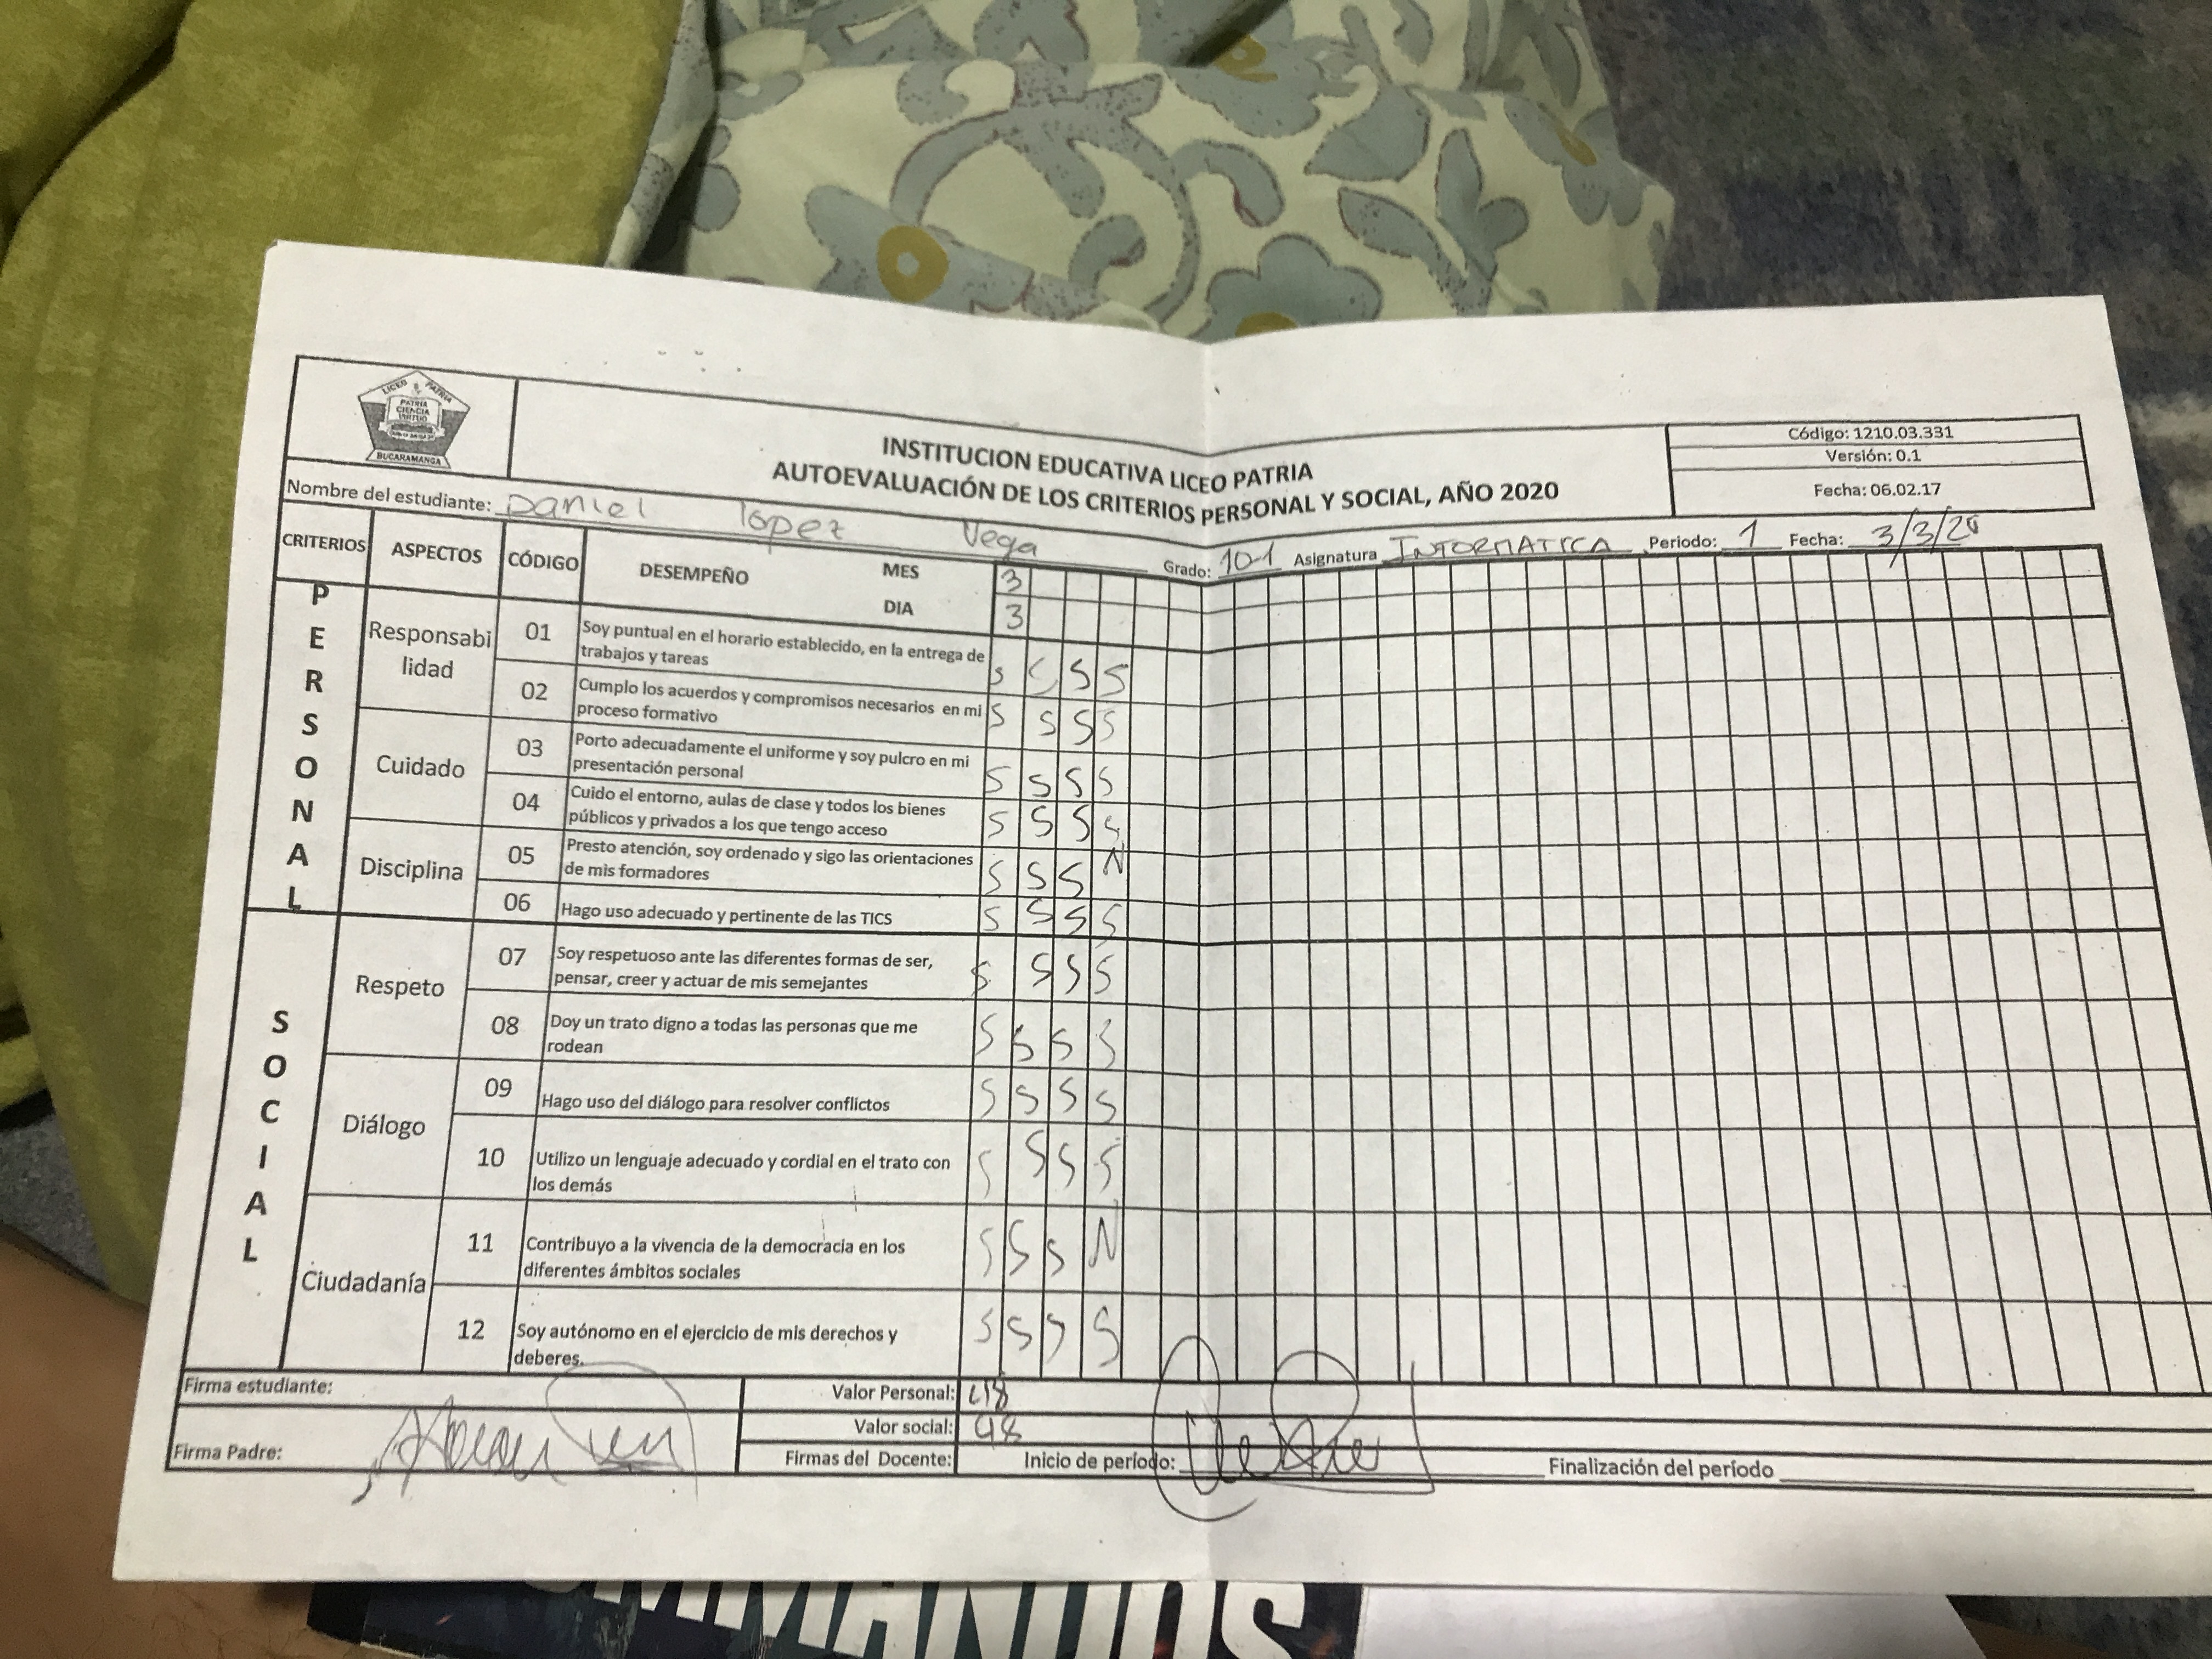 INSTITUCION EDUCATIVA LICEO PATRIA
AUTOEVALUACIÓN DE LOS CRITERIOS PERSONAL Y SOCIAL, AÑO 2020
LICEO PATRIA
PATRIA
CIENCIA
VIRTUD
BUCARAMANGA
Código: 1210.03.331
Versión: 0.1
Fecha: 06.02.17
Nombre del estudiante: Daniel lopez Vega Grado: 101 Asignatura INFORMATICA Periodo: 1 Fecha: 3/3/20
CRITERIOS ASPECTOS CÓDIGO DESEMPEÑO MES 3
DIA 3
PERSONAL
Responsabi
lidad
01 Soy puntual en el horario establecido, en la entrega de
trabajos y tareas
S S S S
02 Cumplo los acuerdos y compromisos necesarios en mi
proceso formativo
S S S S
Cuidado
03 Porto adecuadamente el uniforme y soy pulcro en mi
presentación personal
S S S S
04 Cuido el entorno, aulas de clase y todos los bienes
públicos y privados a los que tengo acceso
S S S S
Disciplina
05 Presto atención, soy ordenado y sigo las orientaciones
de mis formadores
S S S N
06 Hago uso adecuado y pertinente de las TICS
S S S S
SOCIAL
Respeto
07 Soy respetuoso ante las diferentes formas de ser,
pensar, creer y actuar de mis semejantes
S S S S
08 Doy un trato digno a todas las personas que me
rodean
S S S S
Diálogo
09 Hago uso del diálogo para resolver conflictos
S S S S
10 Utilizo un lenguaje adecuado y cordial en el trato con
los demás
S S S S
Ciudadanía
11 Contribuyo a la vivencia de la democracia en los
diferentes ámbitos sociales
S S S N
12 Soy autónomo en el ejercicio de mis derechos y
deberes.
S S S S
Firma estudiante: Valor Personal: 48
Valor social: 48
Firma Padre: Firmas del Docente: Inicio de período: Finalización del período